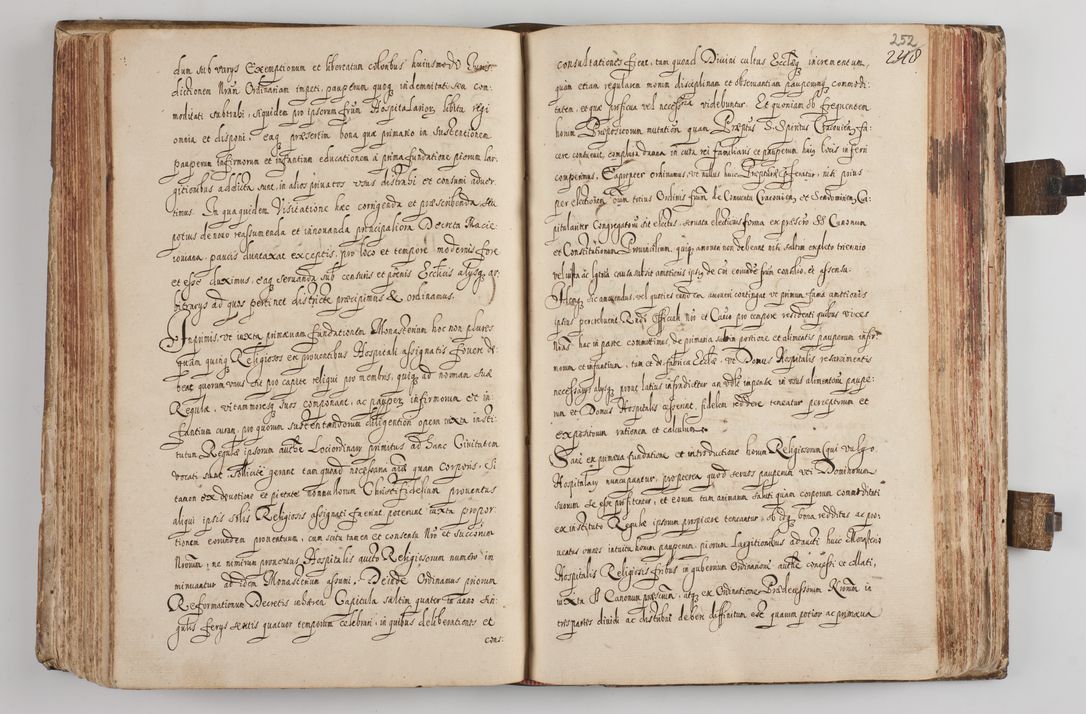 dum sub varys Exemptionum et libertatum coloribus huiusmodi Iuris
dictionem Nram Ordinariam impeti, pauperum quoq indemnitati seu com
moditati subtrahi, siquidem pro ipsorum frum Hospitalarior libitu regi
omnia et disponi: eaq præsertim bona quæ primario in sustentionem
pauperum infirmorum et infantium educationem à prima fundatione piorum lar
gitionibus addicta sunt, in alios privatos usus distrahi et consumi adver
timus. In qua quidem Visitatione hæc corrigenda et præscribenda seu
potius de novo reassumenda et innovanda principaliora Decreta Macie
iowiana, paucis duntaxat exceptis, pro loco et tempore modernis fore
et esse duximus, eaq servanda sub censuris et poenis Ecclicis alysq ar
bitrarys ad quos pertinet districte præcipimus & ordinamus.
Inprimis, ut iuxta primævam fundationem Monasterium hoc non plures
quàm quinq Religiosos ex proventibus Hospitali assignatis fovere de
beat quorum unus sit pro capite reliqui pro membris, quiq ad normam suæ
Regulæ, vitam moresq suos componant, ac pauper infirmorum et in
fantium curam, pro quorum sustentandorum diligention opera iuxta insti
tutum Regulæ ipsorum authe Loci ordinary primitus ad hanc Civitatem
vocati sunt, sollicite gerant tam quoad necessaria aiæ quam corporis. Si
tamen ex devotione et pietate nonnullorum Christi fidelium proventus
aliqui ipsis solis Religiosis assignati fuerint, poterunt iuxta propor
tionem eorundem proventuum, cum scitu tamen et consensu Nro et succorum
Nrorum: ne nimirum proventus Hospitalis aucto Religiosorum numero im
minuantur ad idem Monasterium assumi. Deinde Ordinamus priorum
Reformationum Decretis inhæren Capitula saltim quater in anno sin
gulis ferys sextis quatuor temporum celebrari, in quibus deliberationes et
cons:
252
248
consultationes fient, tam quoad Divini cultus Ecclæq incrementum,
quàm etiam regularem morum disciplinam et observantiam pauperumq commodi:
tatem, et quæ proficua vel necessria videbuntur. Et quoniam ob frequentem
horum Præpositorum mutation quam Præptus S. Spiritus Cracovien fa
cere consuevit, complura damna in cura rei familiaris et pauperum huiq locis inferri
comperimus, Eapropter ordinamus, ut nullus huic Præpturæ præficiatur, nisi prius
per electionem oium totius Ordinis frum de Conventu Cracovien et Sendomirien Ca
pitulariter Congregatorum sit electus, servata electionis forma ex præscro SS Canonum
et Constitutionum Provincialium, quiq amoveri non debeant nisi saltim expleto triennio
vel iusta ac lgtima causa subsit amotionis ipsiq de cui comuni frum consilio, et assensu.
Itemq sic amovendus, vel quoties eundem amoveri contingat ut primum fama amotionis
ipsius percrebuerit Rndi Officiali Nro et Capto pro tempore residenti quibus vices
Nras hac in parte committimus, de primaria saltim portione et alimentis pauperum infir
morum et infantium, tam et de fabrica Ecclæ, ut Domus Hospitalis rescientientis
necessarys alysq prout latius infra dicetur an volte impensæ in usus alimentorum paupe:
rum et Domus Hospitalis cesserint, fidelem reddere teneatur perceptorum et
expositorum rationem et calculum.
Sane ex primæva fundatione et introductione horum Religiosorum (qui vulgo
Hospitalary nuncupantur, propterea quod servos pauperum vti Dominorum
suorum se esse profitentur, et eorum tam animarum saluti quàm corporum commoditati
ex instituto Regulæ ipsorum prospicere teneantur, ob idq bona redditus ac pro
ventus omnes intuitu horum pauperum, piorum largitionibus adaucti huic Monasterio
Hospitalis Religiosis fribus in gubernium Ordinariorum authe concessi et collati,
iuxta SS Canonum præscrum, atq ex Ordinatione Prædecessorum Nrorum in
tres partes dividi ac distribui debere diffinitum est quarum potior ac primæva